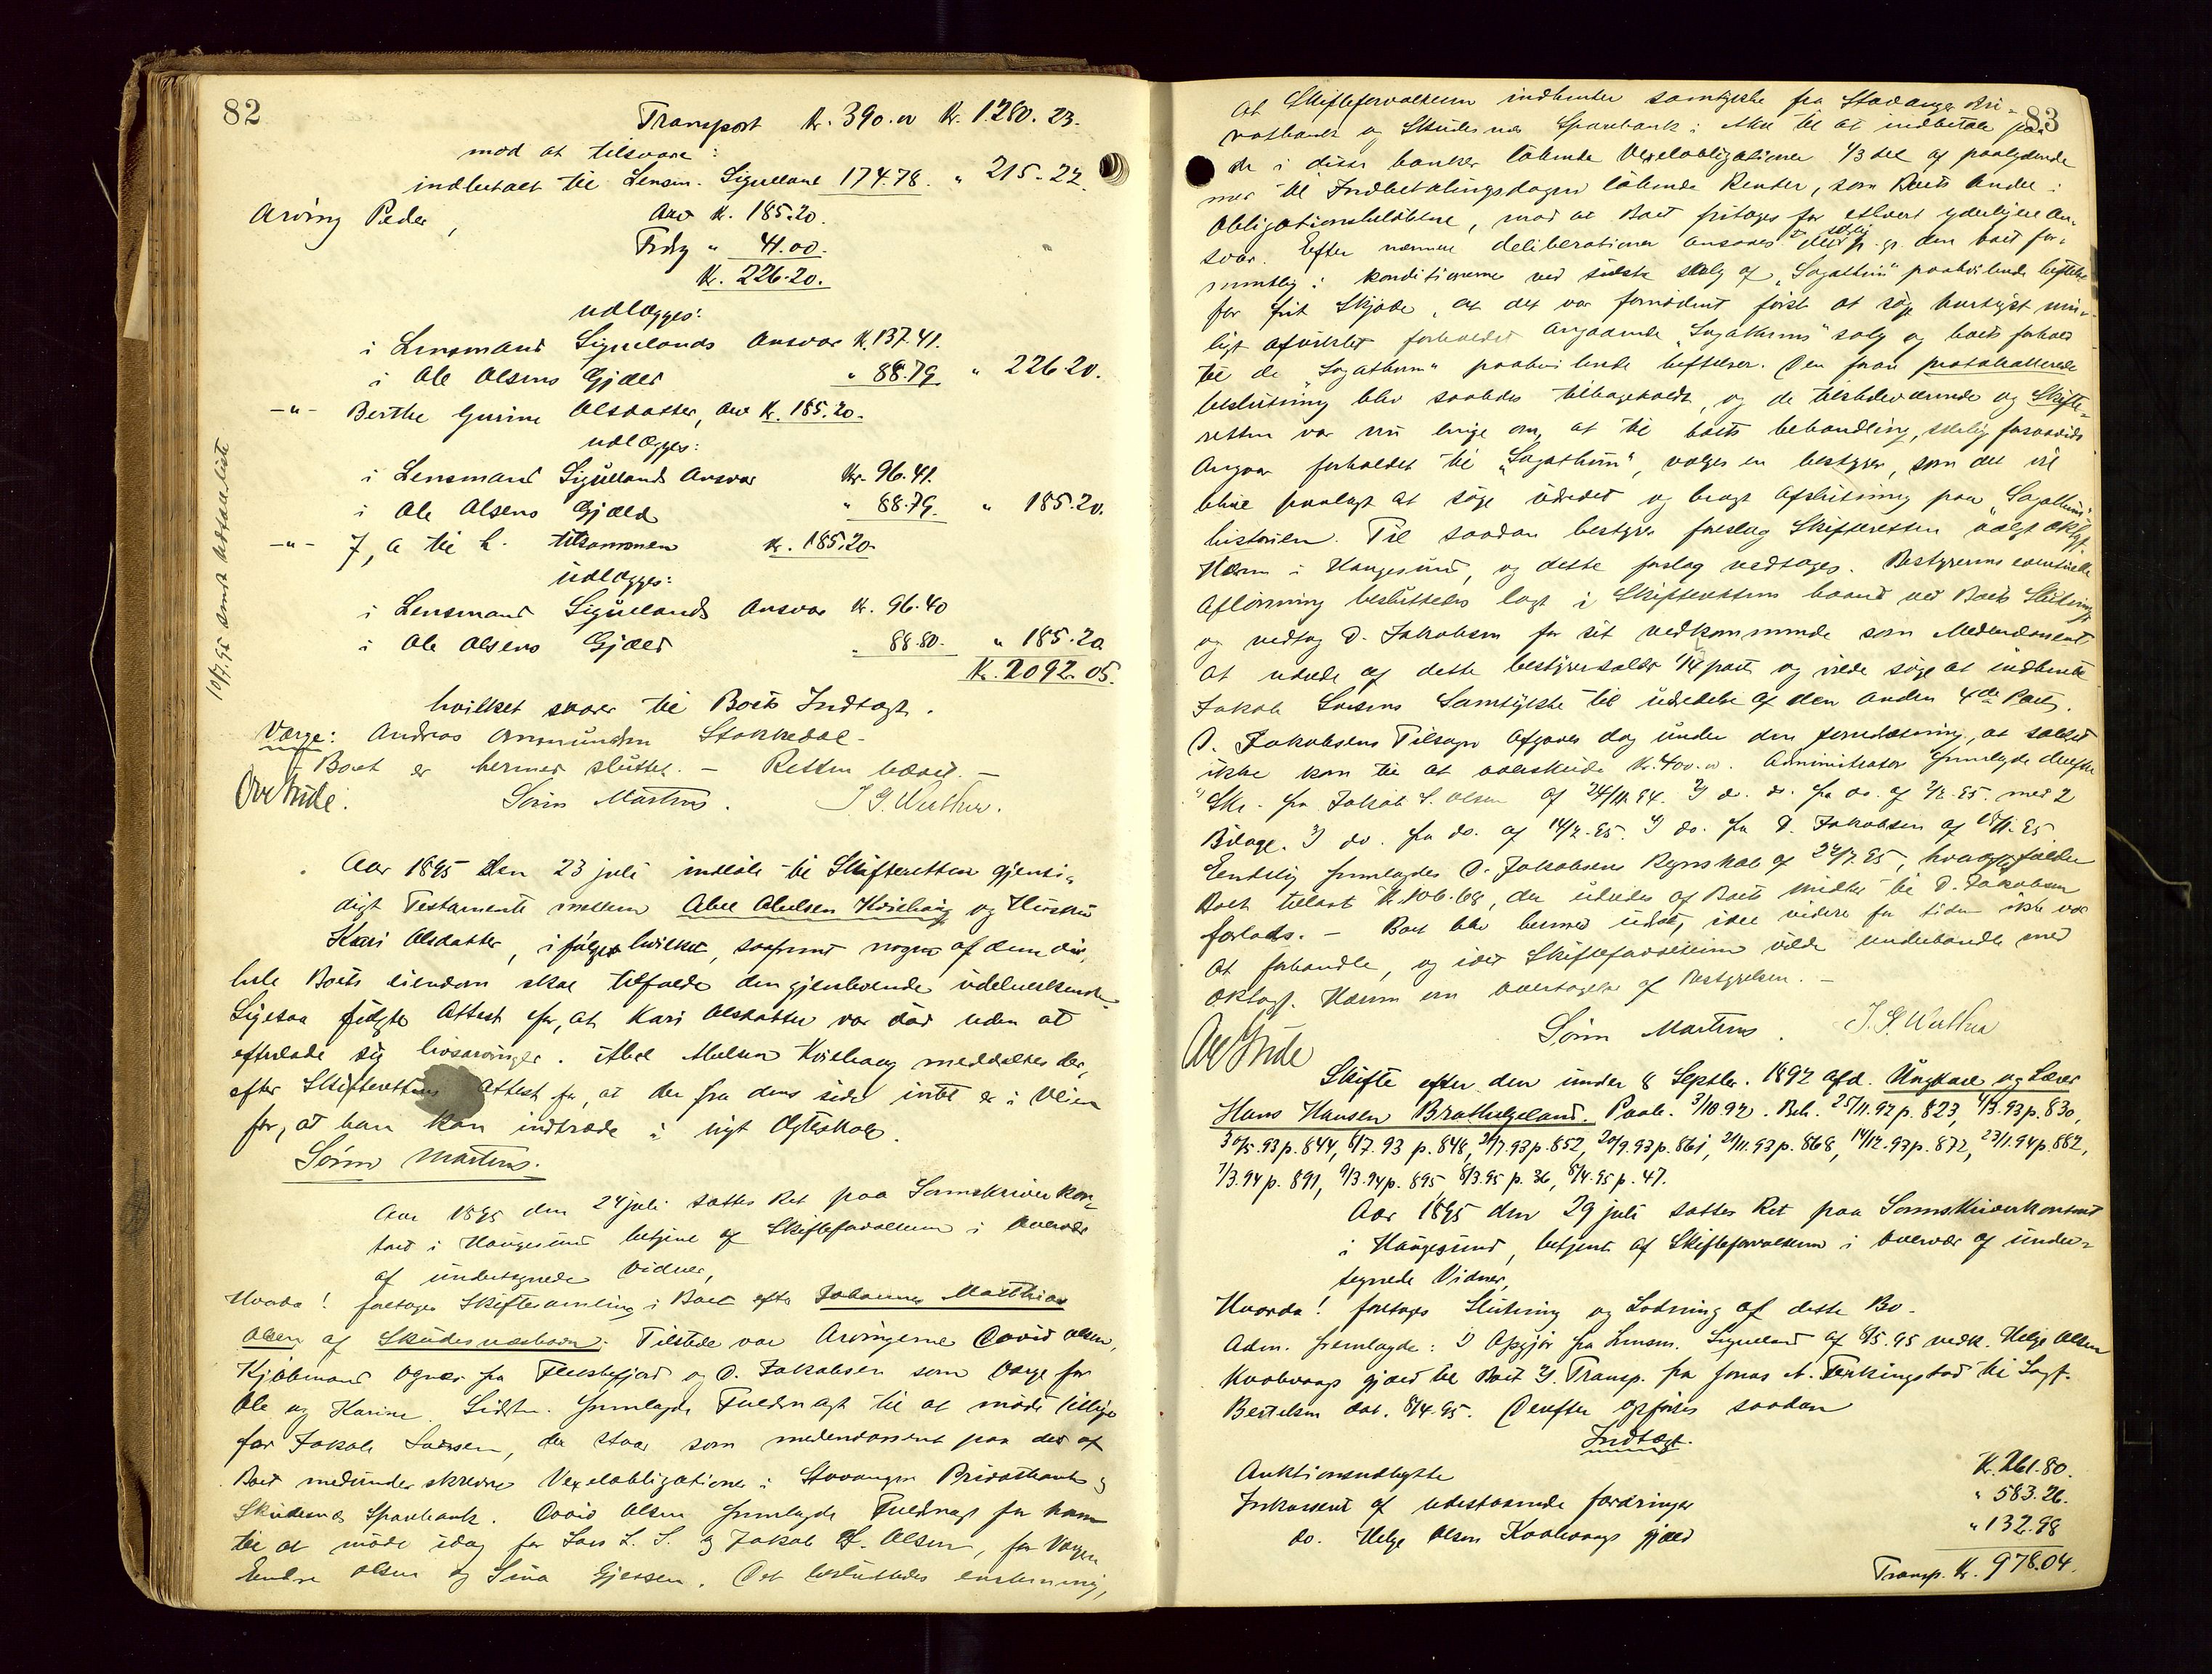 82
Transport Kr. 390.00 Kr. 1280. 23.
mod at tilsvare:
indbetalt til Lensm. Sigvelland 174.78. " 215-22.
Arving Peder, Arv Kr. 185.20.
" 41.00.
Kr. 226.20.
udlægges:
i Lensmand Siguelands Ansvar Kr. 137.41.
i Ole Olsens Gjæld " 88.79. " 226.20.
-"- Berthe Gurine Olsdatter, Arv Kr. 185.20.
udlægges:
i Lensmand Siguelands Ansvar Kr. 96.41.
i Ole Olsens Gjæld " 88.79. " 185.20.
-"- 7, a til h. tilsammen Kr. 185.20.
udlægges:
i Lensmand Siguelands Ansvar Kr. 96.40
i Ole Olsens Gjæld " 88.80. " 185.20
Kr. 2092.05.
10/7.95 sendt Udsaliste
hvilket svarer til Boets Indtægt.
Værge: Andreas Ommundsen Stokkedal-
Boet er hermed sluttet. - Retten hævet. -
Ove Hide. Sören Martens. J G Wuthue.
Aar 1895 den 23 juli indløb til Skifteretten gjensi-
digt Testamente mellem Abel Abelsen Kvilhaug og Hustru
Kari Olsdatter, ifølge hvilket, saafremt nogen af dem dør,
hele Boets eiendom skal tilfalde den gjenlevende udelukkende.
Ligesaa fulgte Attest for, at Kari Olsdatter var död uden at
efterlade sig livsarvinger. Abel Abelsen Kvilhaug meddeltes der-
efter Skifterettens Attest for, at der fra dens side intet er i Veien
for, at han kan indtræde i nyt Ægteskab.
Sören Martens.
Aar 1895 den 24 juli sattes Ret paa Sorenskriverkon-
toret i Haugesund betjent af Skifteforvalteren i Overvær
af undertegnede Vidner,
Hvorda! foretoges Skiftesamling i Boet efter Johannes Matthias
Olsen af Skudesneshavn. Tilstede var Arvingerne David Olsen,
Kjöbmand Ognæs fra Flekkefjord og D. Jakobsen som Værge for
Ole og Karine. Sidstn. fremlagde Fuldmagt til at möde tillige
for Jakob Larsen, der staar som medendossent paa det af
Boet medunderskrevne Vexelobligationer i Stavanger Privatbank og
Skudesnæs Sparebank. David Olsen fremlagde Fuldmagt for ham
til at möde idag for Lars L. S. og Jakob S. Olsen, for Værgen
Endre Olsen og Sina Gjersen. Det besluttedes enstemmig,
83
at Skifteforvalteren indhenter samtykke fra Stavanger Pri-
vatbank og Skudesnes Sparebank i til at indbetale paa
de i disse banker løbende Vexelobligationer 1/3 del af paalydende
med til Indbetalingsdagen löbende Renter, som Boets Andel i
Obligationsbeløbene, mod at Boet fritages for ethvert yderligere An-
svar. Efter nærmere deliberationer ansaaes det p. gr. den boet for-
mentlig i konditionerne ved sidste salg af "Sagatun" paahvilende heftelse
for frit Skjøde, at det var fornødent först at søge hurtigst mu-
ligt afviklet forholdet angaaende "Sagatuns" salg og boets forhold
til de "Sagatun" paahvilende heftelser. Den foran protokollerede
beslutning blev saaledes tilbagekaldt, og de tilstedeværende og Skifte-
retten var nu enige om, at til boets behandling, særlig forsaavidt
Angaar forholdet til "Sagatun", vælges en bestyrer, som det vil
blive paalagt at söge udredet og bragt Afslutning paa "Sagatun"
historien. Til saadan bestyrer foreslog Skifteretten valgt Oktgf.
Hærem i Haugesund, og dette forslag vedtoges. Bestyrerens eventuelle
Aflönning besluttedes lagt i Skifterettens haand ved Boets Slutning,
og vedtog D. Jakobsen for sit vedkommende som Medendossent
at udrede af dette bestyrersalær 1/4 part og vilde söge at indhente
Jakob Larsens Samtykke til udredelse af den anden 4de Part.
D. Jakobsens Tilsagn afgaves dog under den forudsætning, at salæret
ikke kom til at overskride Kr. 400.00. Administrator fremlagde derefter
1) Skr. fra Jakob S. Olsen af 24/11.94. 2) do. do. fra do. af 2/2.95. med 2
Bilage. 3) do. fra do. af 14/2.95. 4) do. fra D. Jakobsen af
Endelig fremlagdes D. Jakobsens Regnskab af 24/7.95, hvorefter
Boet Kr. 106.68, der udredes af Boets midler til D. Jakobsen
forlods. - Boet blev hermed udsat, idet videre for tiden ikke var
at forhandle, og idet Skifteforvalteren vilde underhandle med
Oktgf. Hærem om overtagelse af Bestyrelsen. -
Ove Hide Sören Martens. J. G. Wuthue
Skifte efter den under 8 Septbr. 1892 afd. Ungkarl og Lærer
Hans Hansen Bratthelgeland. Paab. 3/10 92. Beh. 25/11.92 p. 823, 4/3.93 p. 830,
30/5.93 p. 844, 6/7.93 p. 848, 21/7.93 p. 852, 20/9.93 p. 861, 21/11.93 p. 868, 14/12.93 p. 872, 23/1.94 p. 882,
7/3.94 p. 891, 9/3.94 p. 895, 8/3.95 p. 36, 8/4.95 p. 47.
Aar 1895 den 29 juli sattes Ret paa Sorenskriverkontoret
i Haugesund, betjent af Skifteforvalteren i overvær af under-
tegnede Vidner,
Hvorda! foretoges Slutning og Lodning af dette Bo-
Adm. fremlagde: 1) Opgjør fra Lensm. Sigvelland af 8/5.95 vedk. Helge Olsen
Kvalevaags gjæld til Boet 2). Transp. fra Jonas A. Ferkingstad til Sagf.
Bertelsen dat. 8/4.95. Derefter opføres saadan
Indtægt.
Auktionsudbytte Kr. 261.80.
Inkasseret af udestaaende fordringer " 583.26.
do. Helge Olsen Kvalevaags gjæld " 132.98
Transp. Kr. 978.04.